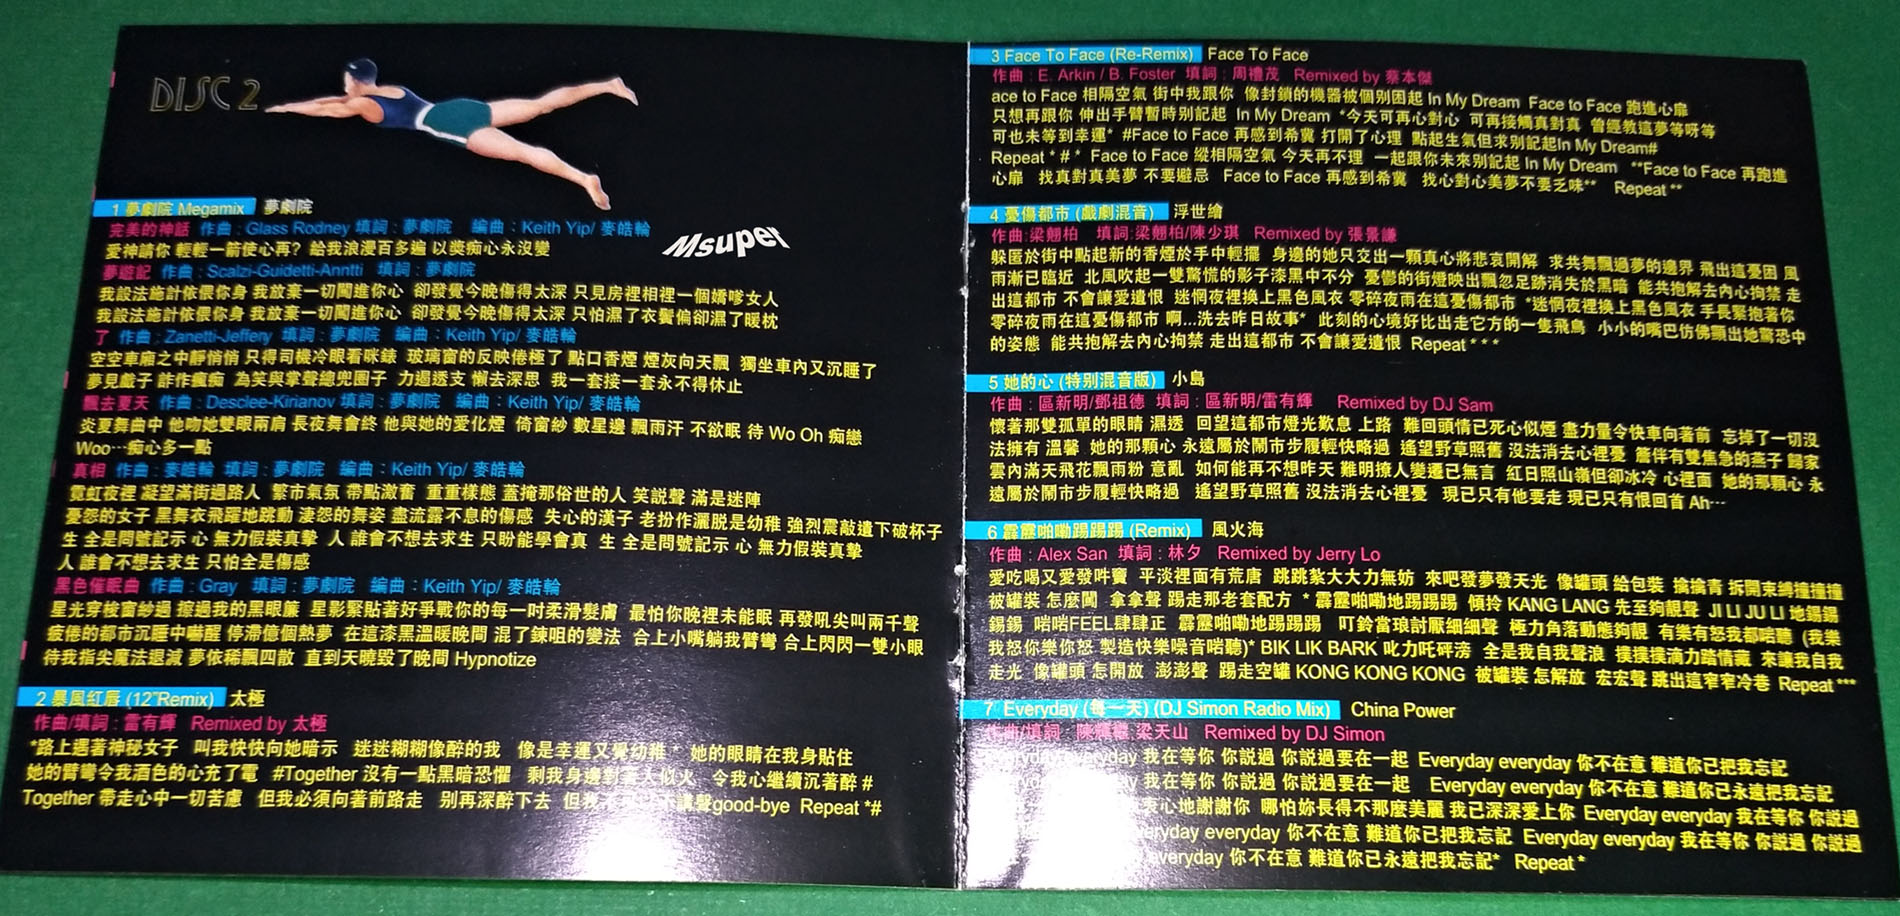 DISC 2
1 夢劇院 Megamix 夢劇院
完美的神話 作曲 : Glass Rodney 填詞 : 夢劇院 編曲 : Keith Yip/ 麥皓輪
Msuper
愛神請你 輕輕一箭使心再? 給我浪漫百多遍 以獎痴心永沒變
夢遊記 作曲 : Scalzi-Guidetti-Anntti 填詞 : 夢劇院
我設法施計依偎你身 我放棄一切闖進你心 卻發覺今晚傷得太深 只見房裡相裡一個嬌嗲女人
我設法施計依偎你身 我放棄一切闖進你心 卻發覺今晚傷得太深 只怕濕了衣鬢偏卻濕了暖枕
了 作曲 : Zanetti-Jeffery 填詞 : 夢劇院 編曲 : Keith Yip/ 麥皓輪
空空車廂之中靜悄悄 只得司機冷眼看咪錶 玻璃窗的反映倦極了 點口香煙 煙灰向天飄 獨坐車內又沉睡了
夢見戲子 詐作瘋痴 為笑與掌聲總兜圈子 力遏透支 懶去深思 我一套接一套永不得休止
飄去夏天 作曲 : Desclee-Kirianov 填詞 : 夢劇院 編曲 : Keith Yip/ 麥皓輪
炎夏舞曲中 他吻她雙眼兩肩 長夜舞會終 他與她的愛化煙 倚窗紗 數星邊 飄雨汗 不欲眠 待 Wo Oh 痴戀
Woo…痴心多一點
真相 作曲 : 麥皓輪 填詞 : 夢劇院 編曲 : Keith Yip/ 麥皓輪
霓虹夜裡 凝望滿街過路人 繁市氣氛 帶點激奮 重重樣態 蓋掩那俗世的人 笑説聲 滿是迷陣
憂怨的女子 黑舞衣飛躍地跳動 淒怨的舞姿 盡流露不息的傷感 失心的漢子 老扮作灑脱是幼稚 強烈震敲遺下破杯子
生 全是問號記示 心 無力假裝真摯 人 誰會不想去求生 只盼能學會真 生 全是問號記示 心 無力假裝真摯
人 誰會不想去求生 只怕全是傷感
黑色催眠曲 作曲 : Gray 填詞 : 夢劇院 編曲 : Keith Yip/ 麥皓輪
星光穿梭窗紗過 擦過我的黑眼簾 星影緊貼著好爭戰你的每一吋柔滑髮膚 最怕你晚裡未能眠 再發吼尖叫兩千聲
疲倦的都市沉睡中嚇醒 停滯億個熱夢 在這漆黑溫暖晚間 混了鍊咀的變法 合上小嘴躺我臂彎 合上閃閃一雙小眼
待我指尖魔法退減 夢依稀飄四散 直到天曉毀了晚間 Hypnotize
2 暴風紅唇 (12"Remix) 太極
作曲/填詞 : 雷有輝 Remixed by 太極
*路上遇著神秘女子 叫我快快向她暗示 迷迷糊糊像醉的我 像是幸運又覺幼稚 * 她的眼睛在我身貼住
她的臂彎令我酒色的心充了電 #Together 沒有一點黑暗恐懼 剩我身邊對 人似火 令我心繼續沉著醉 #
Together 帶走心中一切苦慮 但我必須向著前路走 別再深醉下去 但我 講聲good-bye Repeat *#
3 Face To Face (Re-Remix) Face To Face
作曲 : E. Arkin / B. Foster 填詞 : 周禮茂 Remixed by 蔡本傑
ace to Face 相隔空氣 街中我跟你 像封鎖的機器被個別困起 In My Dream Face to Face 跑進心扉
只想再跟你 伸出手臂暫時别記起 In My Dream *今天可再心對心 可再接觸真對真 曾經教這夢等呀等
可也未等到幸運* #Face to Face 再感到希冀 打開了心理 點起生氣但求别記起In My Dream#
Repeat * # * Face to Face 縱相隔空氣 今天再不理 一起跟你未來别記起 In My Dream **Face to Face 再跑進
心扉 找真對真美夢 不要避忌 Face to Face 再感到希冀 找心對心美夢不要乏味** Repeat **
4 憂傷都市 (戲劇混音) 浮世繪
作曲:梁翹柏 填詞:梁翹柏/陳少琪 Remixed by 張景謙
躲匿於街中點起新的香煙於手中輕擺 身邊的她只交出一顆真心將悲哀開解 求共舞飄過夢的邊界 飛出這憂困 風
雨漸已臨近 北風吹起一雙驚慌的影子漆黑中不分 憂鬱的街燈映出飄忽足跡消失於黑暗 能共抱解去內心拘禁 走
出這都市 不會讓愛遺恨 迷惘夜裡換上黑色風衣 零碎夜雨在這憂傷都市 *迷惘夜裡換上黑色風衣 手長緊抱著你
零碎夜雨在這憂傷都市 啊...洗去昨日故事* 此刻的心境好比出走它方的一隻飛鳥 小小的嘴巴仿佛顯出她驚恐中
的姿態 能共抱解去內心拘禁 走出這都市 不會讓愛遺恨 Repeat * * *
5 她的心 (特别混音版) 小島
作曲 : 區新明/鄧祖德 填詞 : 區新明/雷有輝 Remixed by DJ Sam
懷著那雙孤單的眼睛 濕透 回望這都市燈光歎息 上路 難回頭情已死心似煙 盡力量令快車向著前 忘掉了一切沒
法擁有 溫馨 她的那顆心 永遠屬於鬧市步履輕快略過 遙望野草照舊 沒法消去心裡憂 簷伴有雙焦急的燕子 歸家
雲內滿天飛花飄雨粉 意亂 如何能再不想昨天 難明撩人變遷已無言 紅日照山嶺但卻冰冷 心裡面 她的那顆心 永
遠屬於鬧市步履輕快略過 遙望野草照舊 沒法消去心裡憂 現已只有他要走 現已只有恨回首 Ah…
6 霹靂啪嘞踢踢踢 (Remix) 風火海
作曲 : Alex San 填詞 : 林夕 Remixed by Jerry Lo
愛吃喝又愛發吽竇 平淡裡面有荒唐 跳跳紮大大力無妨 來吧發夢發天光 像罐頭 給包裝 擒擒青 拆開束縛撞撞撞
被罐裝 怎麼闖 拿拿聲 踢走那老套配方 * 霹靂啪嘞地踢踢踢 傾拎 KANG LANG 先至夠靚聲 JI LI JU LI 地錫錫
錫錫 啱啱FEEL肆肆正 霹靂啪嘞地踢踢踢 叮鈴當琅討厭細細聲 極力角落動態夠靚 有樂有怒我都啱聽 (我樂
我怒你樂你怒 製造快樂噪音啱聽)* BIK LIK BARK 叱力吒砰滂 全是我自我聲浪 撲撲撲滴力踏情藏 來讓我自我
走光 像罐頭 怎開放 澎澎聲 踢走空罐 KONG KONG KONG 被罐裝 怎解放 宏宏聲 跳出這窄窄冷巷 Repeat ***
7 Everyday (每一天) (DJ Simon Radio Mix) China Power
作曲/填詞 陳輝 梁天山 Remixed by DJ Simon
everyday 我在等你 你説過 你説過要在一起 Everyday everyday 你不在意 難道你已把我忘記
yday 我在等你 你説過 你説過要在一起 Everyday everyday 你不在意 難道你已永遠把我忘記
衷心地謝謝你 哪怕妳長得不那麼美麗 我已深深愛上你 Everyday everyday 我在等你 你説過
eryday everyday 你不在意 難道你已把我忘記 Everyday everyday 我在等你 你説過 你説過
everyday 你不在意 難道你已永遠把我忘記* Repeat *